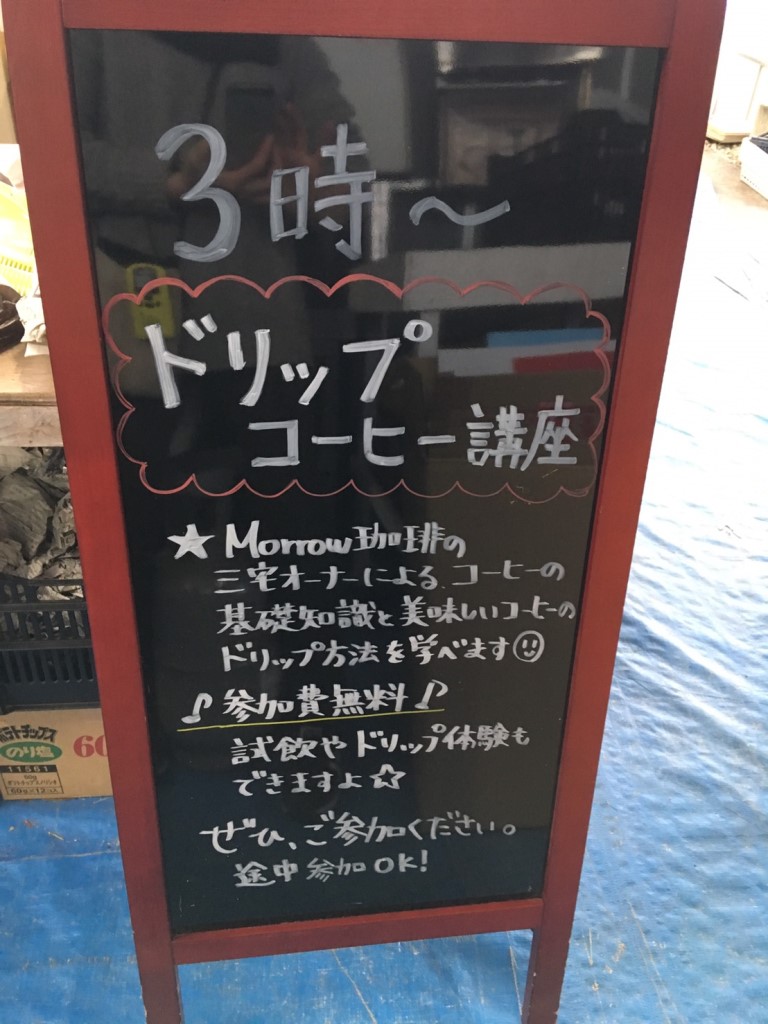 3時～
ドリップ
コーヒー講座
★Morrow珈琲の
三宅オーナーによる コーヒーの
基礎知識と美味しいコーヒーの
ドリップ方法を学べます☺
♪参加費無料♪
試飲やドリップ体験も
できますよ☆
ぜひ、ご参加ください。
途中参加OK!
ポテトチップス
のり塩
60
11561
60g×12コ入